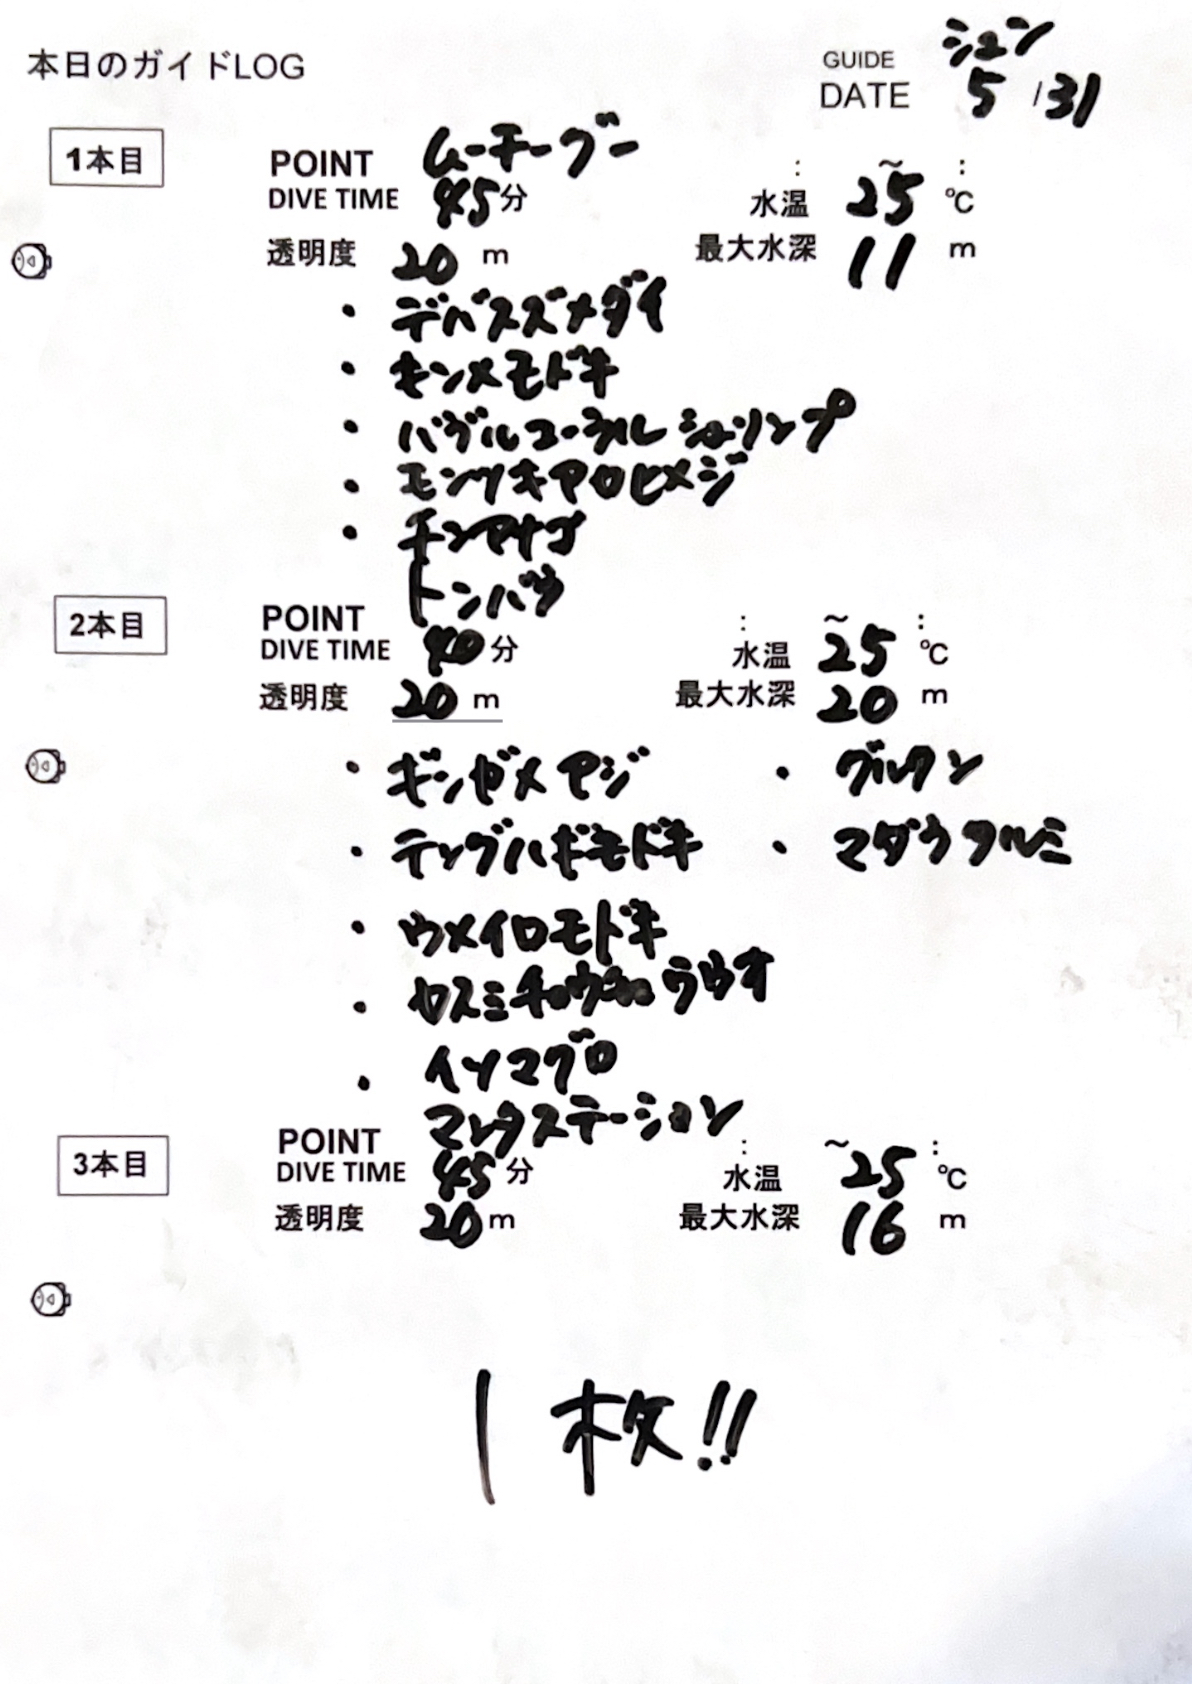 本日のガイドLOG
GUIDE シュン
DATE 5/31
1本目
POINT ムーチーグー : ~ :
DIVE TIME 45分 水温 25 ℃
透明度 20 m 最大水深 11 m
・デバスズメダイ
・キンメモドキ
・バブルコーラルシュリンプ
・モンツキアカヒメジ
・チンアナゴ
2本目
POINT トンバラ : ~ :
DIVE TIME 40分 水温 25 ℃
透明度 20 m 最大水深 20 m
・ギンガメアジ ・グルクン
・テングハギモドキ ・マダラタルミ
・ウメイロモドキ
・カスミチョウチョウウオ
・イソマグロ
3本目
POINT マンタステーション : ~ :
DIVE TIME 45分 水温 25 ℃
透明度 20 m 最大水深 16 m
1枚!!